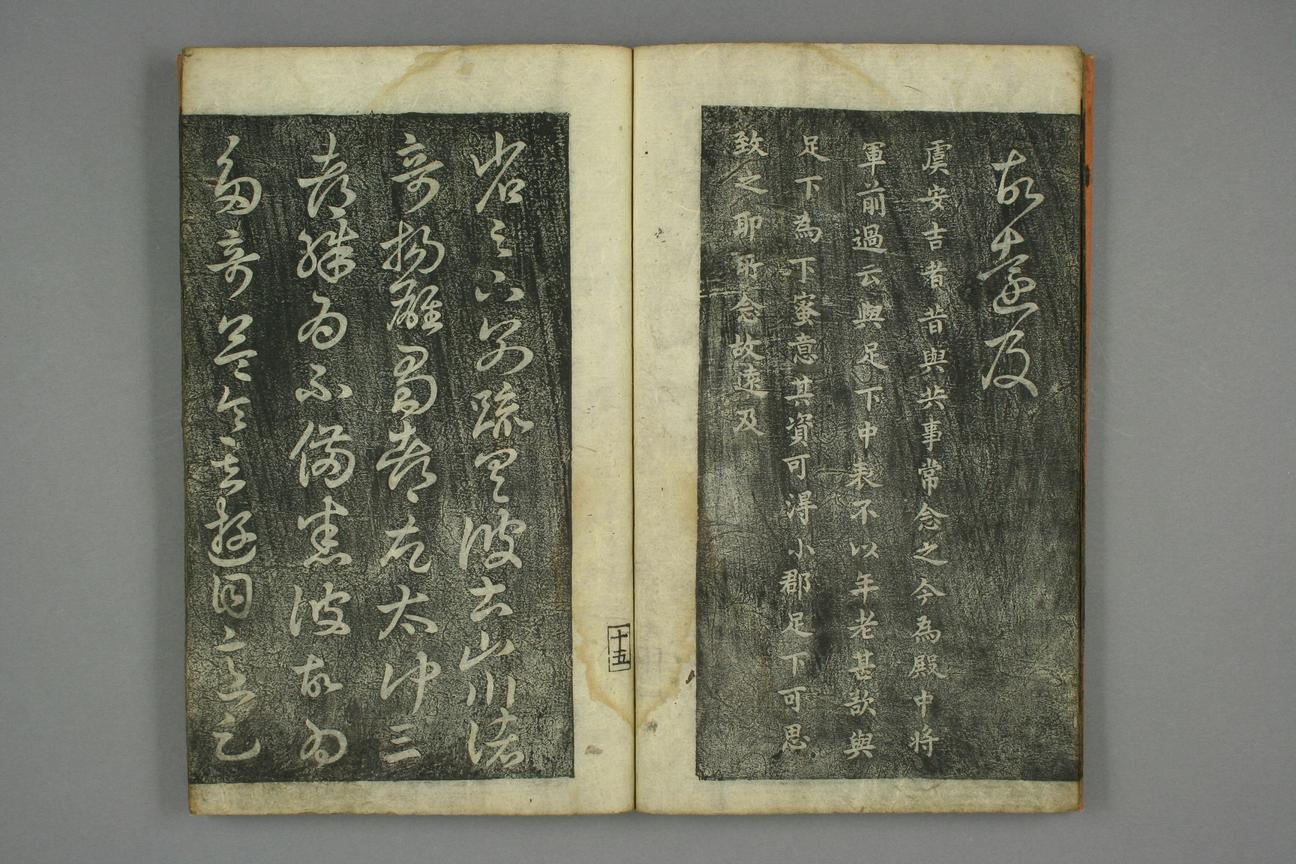 故遠及
虞安吉者昔與共事常念之今為殿中将
軍前過云與足下中表不以年老甚欲與
足下為下蜜意其資可得小郡足下可思
致之耶所念故遠及
十五
省足下別疏具彼土山川諸
奇揚雄蜀都左太冲三
都殊為不備悉彼故為
多奇益令其遊目意足也